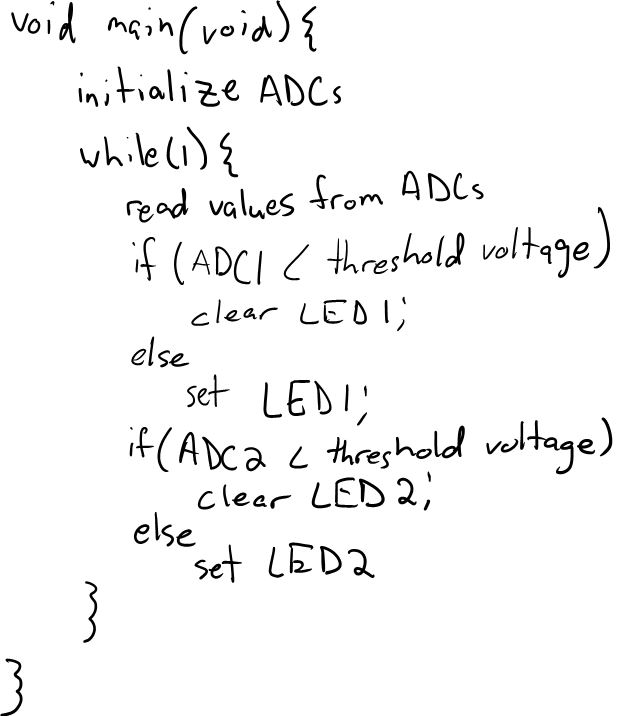 void main(void){
initialize ADCs
while(1){
read values from ADCs
if (ADC1 < threshold voltage)
clear LED1;
else
set LED1;
if(ADC2 < threshold voltage)
clear LED2;
else
set LED2
}
}